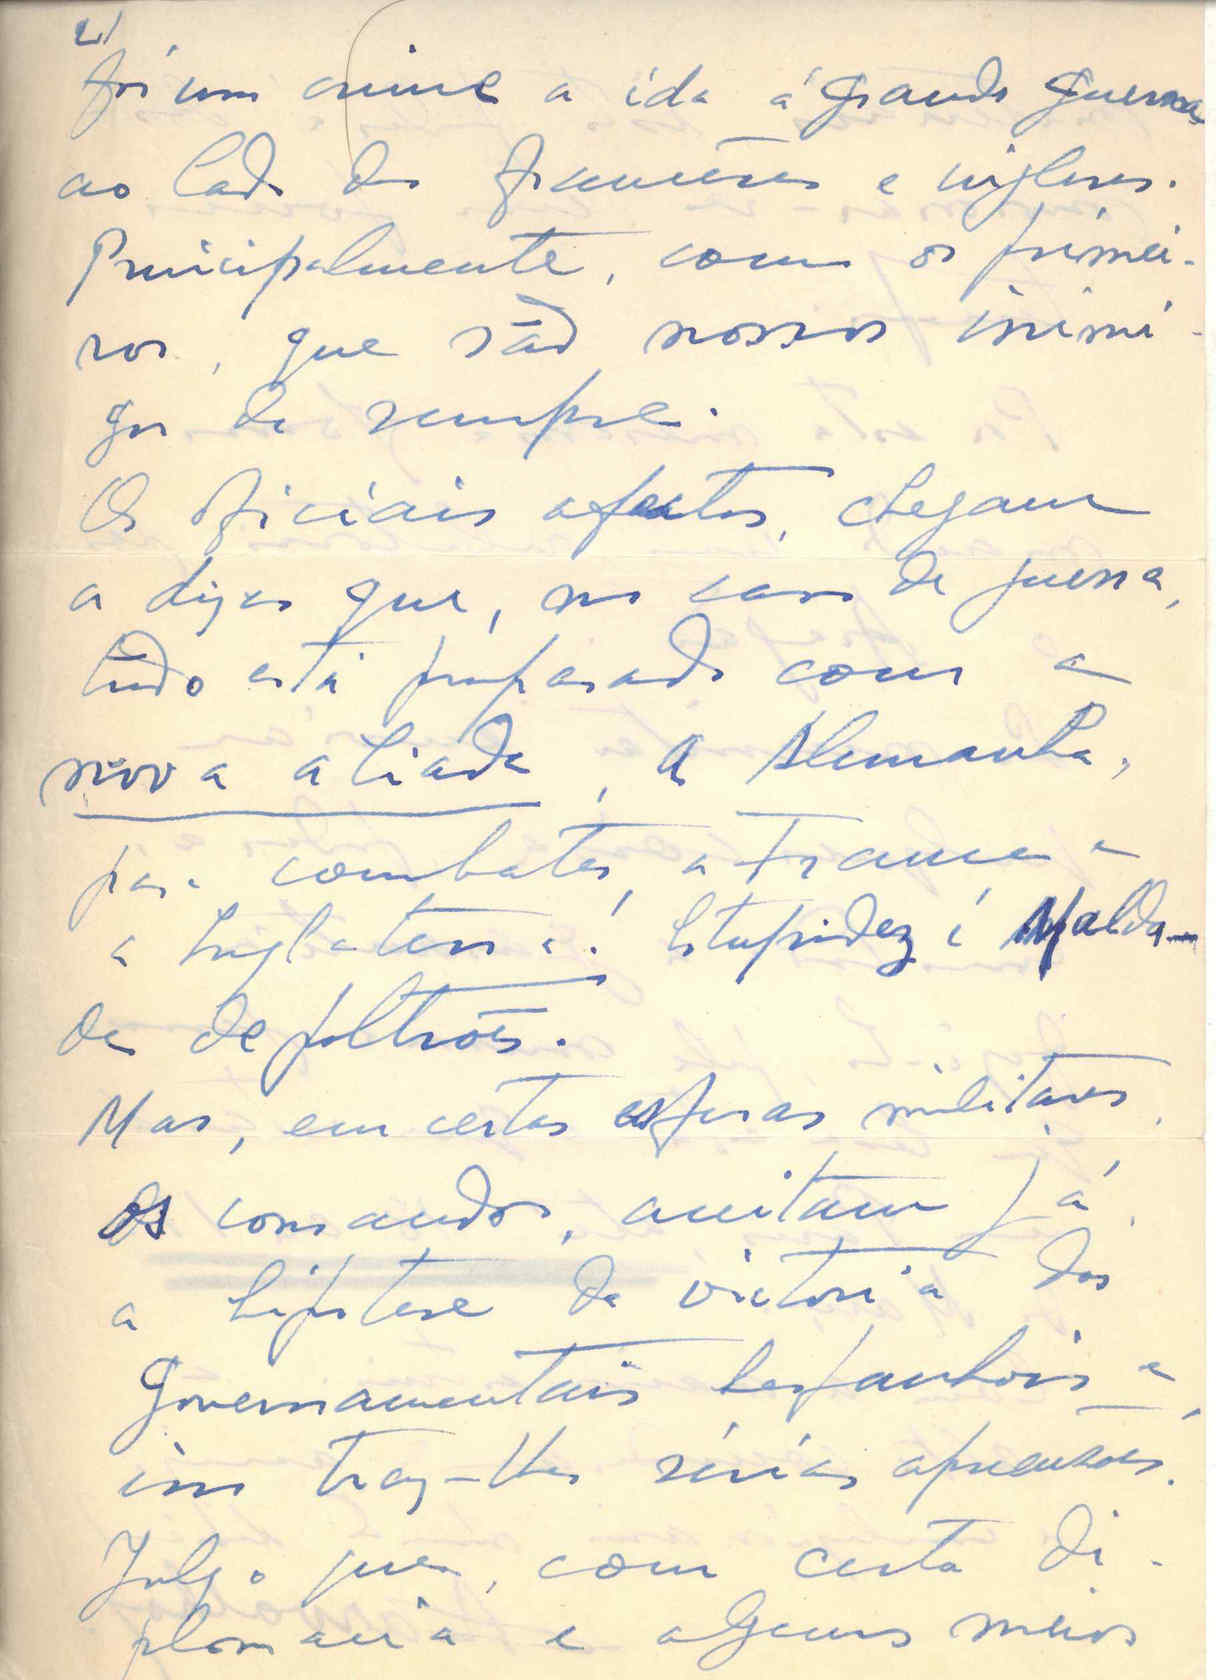 2/
foi um crime a ida á grande guerra,
ao lado de franceses e ingleses.
Principalmente, com os primei-
ros, que são nossos inimi-
gos de sempre.
Os oficiais afectos, chegam
a dizer que, no caso de guerra,
tudo está preparado com a
nova aliada, a Alemanha,
para combater, a França e
a Inglaterra! Estupidez é Malda-
de de poltrões.
Mas, em certas esferas militares,
os comandos, aceitam já,
a hipotese da victoria dos
Governamentais hespanhois e,
isso traz-lhes sérias apreensões.
Julgo que, com certa di-
plomacia e alguns meios